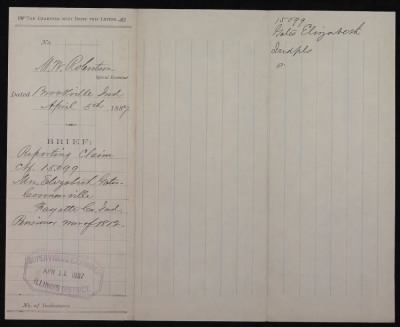 THE EXAMINER MUST BRIEF THIS LETTER.
No.
M. W. Robertson
Special Examiner.
Dated Brookville Ind
April 5th, 1887
BRIEF:
Reporting Claim
Ctf. 15.099
Mrs. Elizabeth Bates
Connersville
Fayette Co. Ind.
Pensioner war of 1812.
SUPERVISING EXAMINER
APR 11 1887
ILLINOIS DISTRICT.
No. of Inclosures
15099
Bates Elizabeth
Indpls